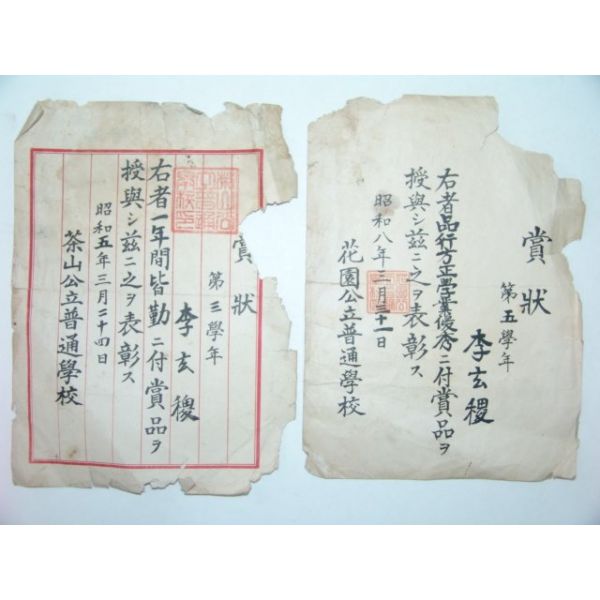 賞狀
第五學年
李玄稷
右者品行方正學業優秀ニ付賞品ヲ
授與シ茲ニ之ヲ表彰ス
昭和八年三月三十一日
花園公立普通學校
賞狀
第三學年
李玄稷
右者一年間皆勤ニ付賞品ヲ
授與シ茲ニ之ヲ表彰ス
昭和五年三月二十四日
茶山公立普通學校